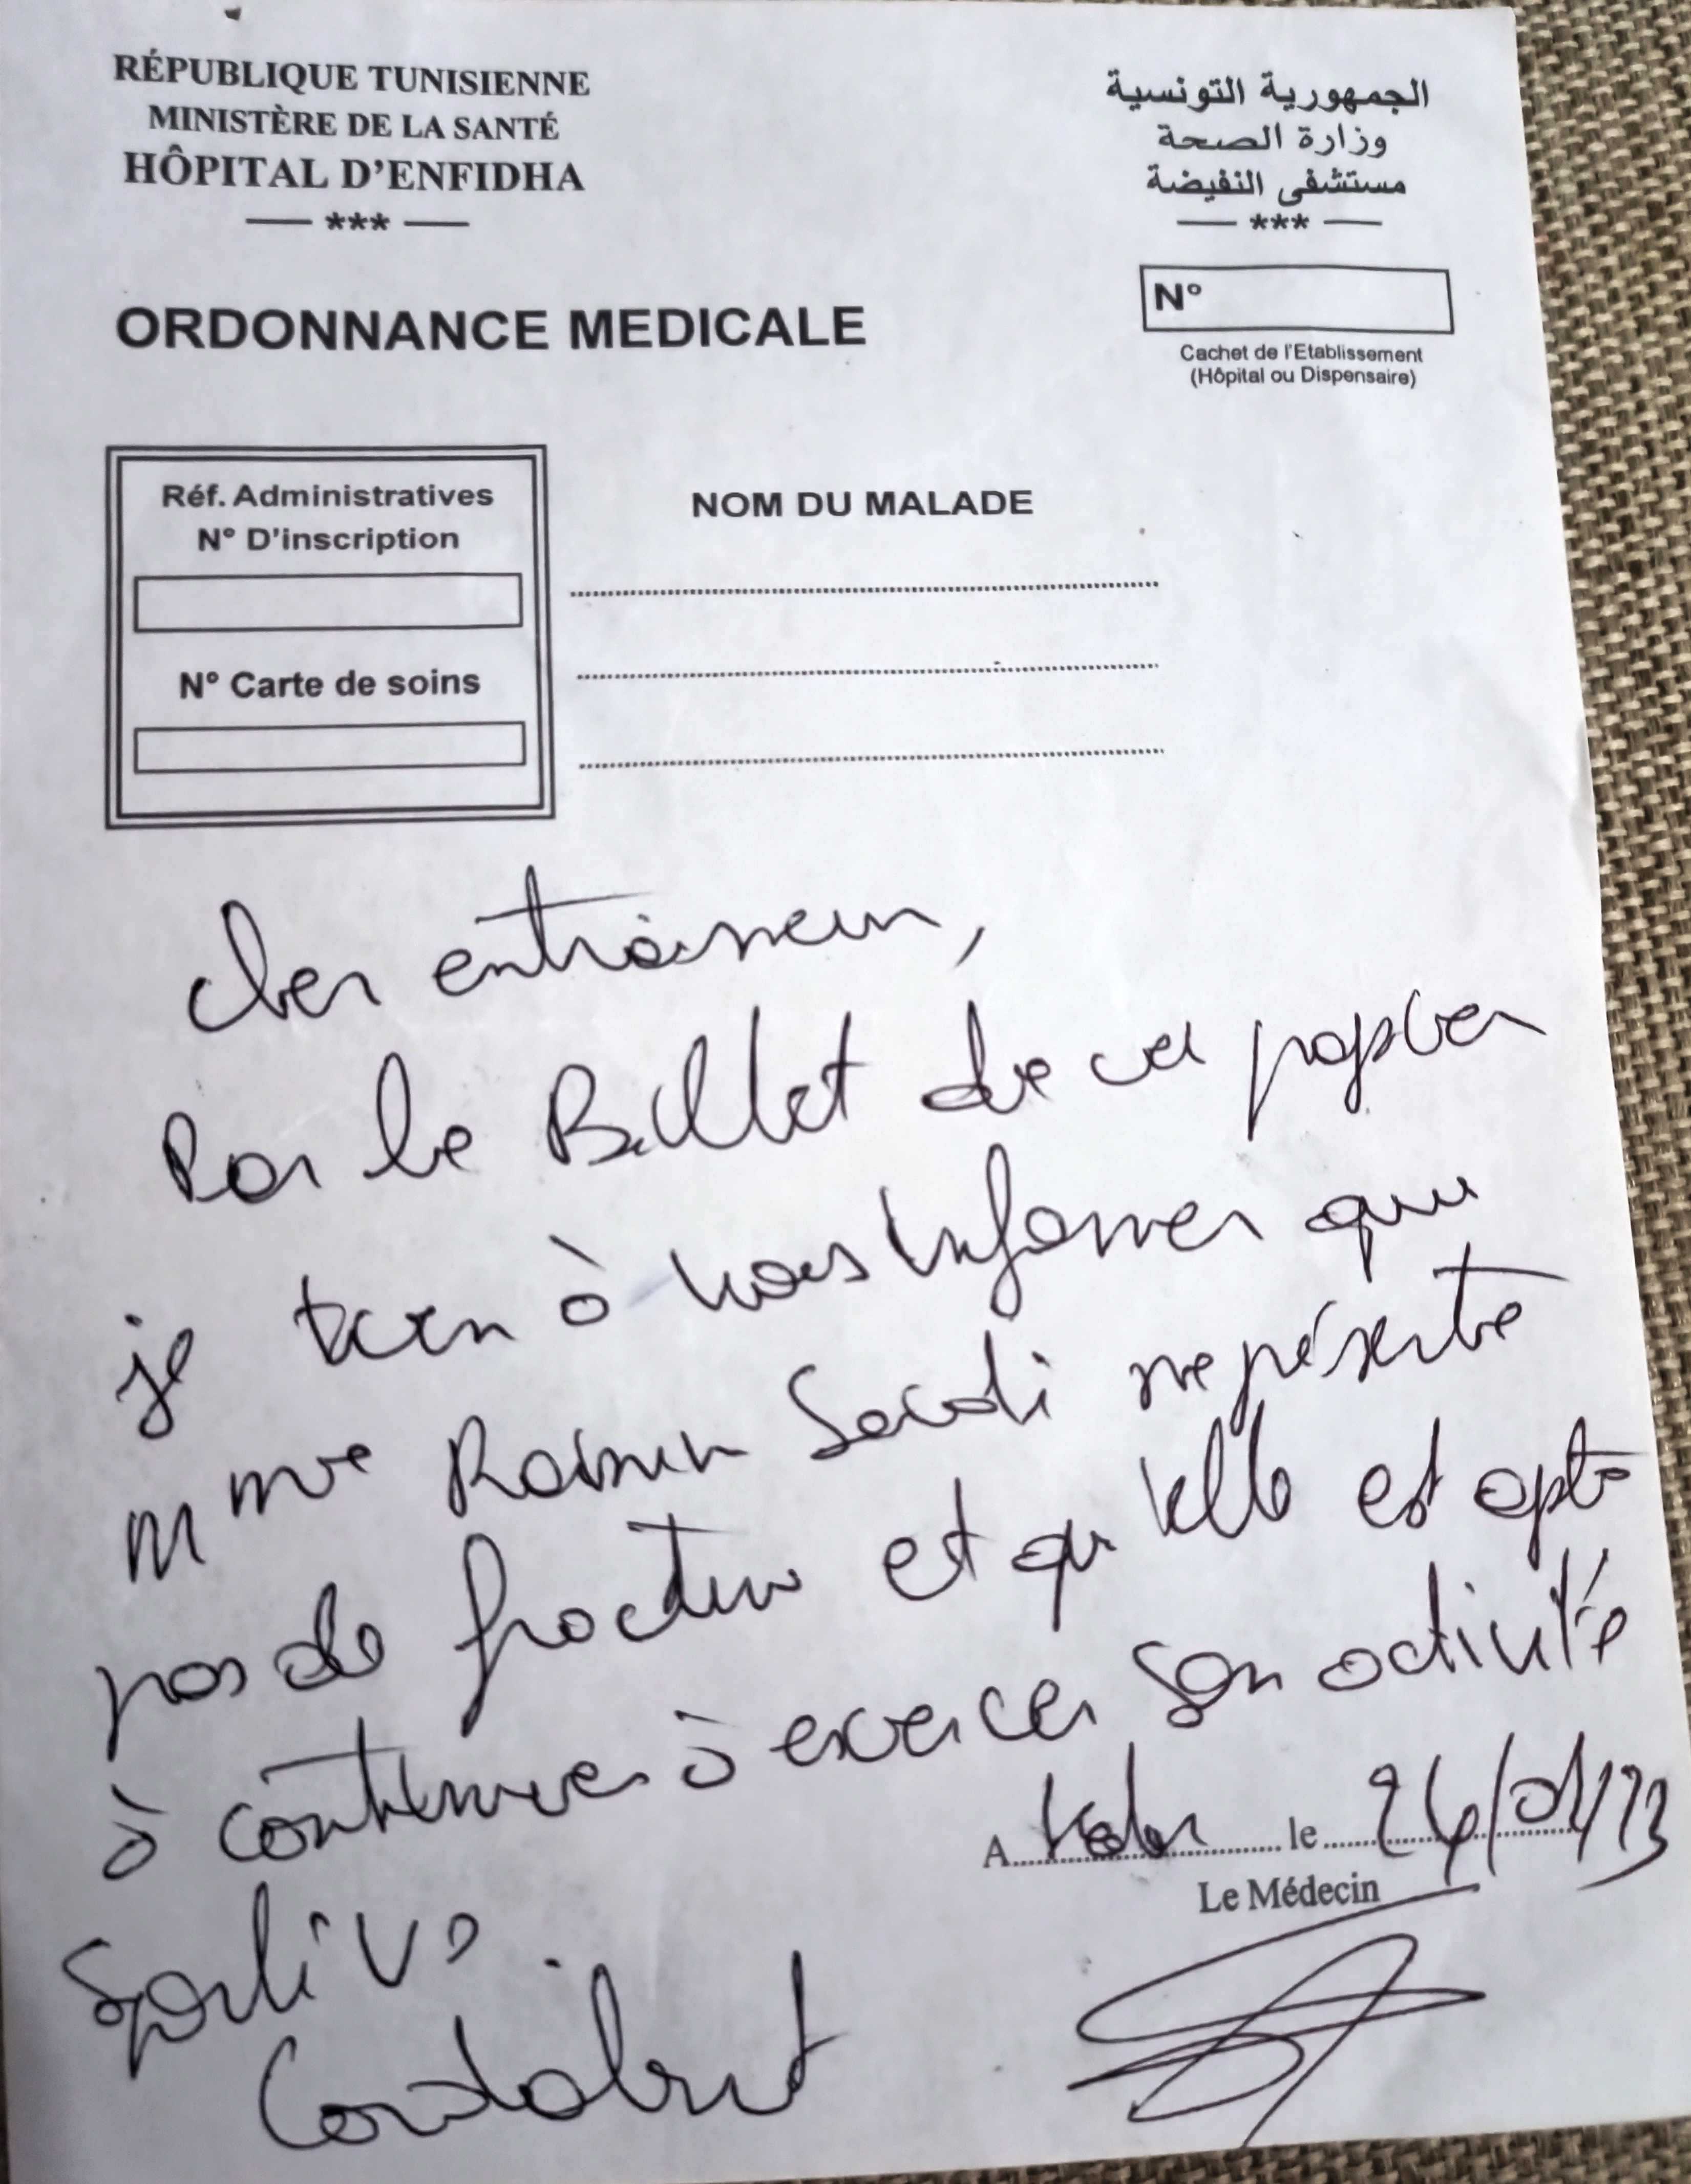 RÉPUBLIQUE TUNISIENNE
MINISTÈRE DE LA SANTÉ
HÔPITAL D'ENFIDHA
***
الجمهورية التونسية
وزارة الصحة
مستشفى النفيضة
***
N°
Cachet de l'Etablissement
(Hôpital ou Dispensaire)
ORDONNANCE MEDICALE
Réf. Administratives
N° D'inscription
N° Carte de soins
NOM DU MALADE
cher entraineur,
Par le Billet de ce papier
je tien à vous informer que
Mme Saidi ne présente
pas de fracture et qu'elle est apte
à continuer à exercer son activité
sportive.
Cordialement
A le
Le Médecin